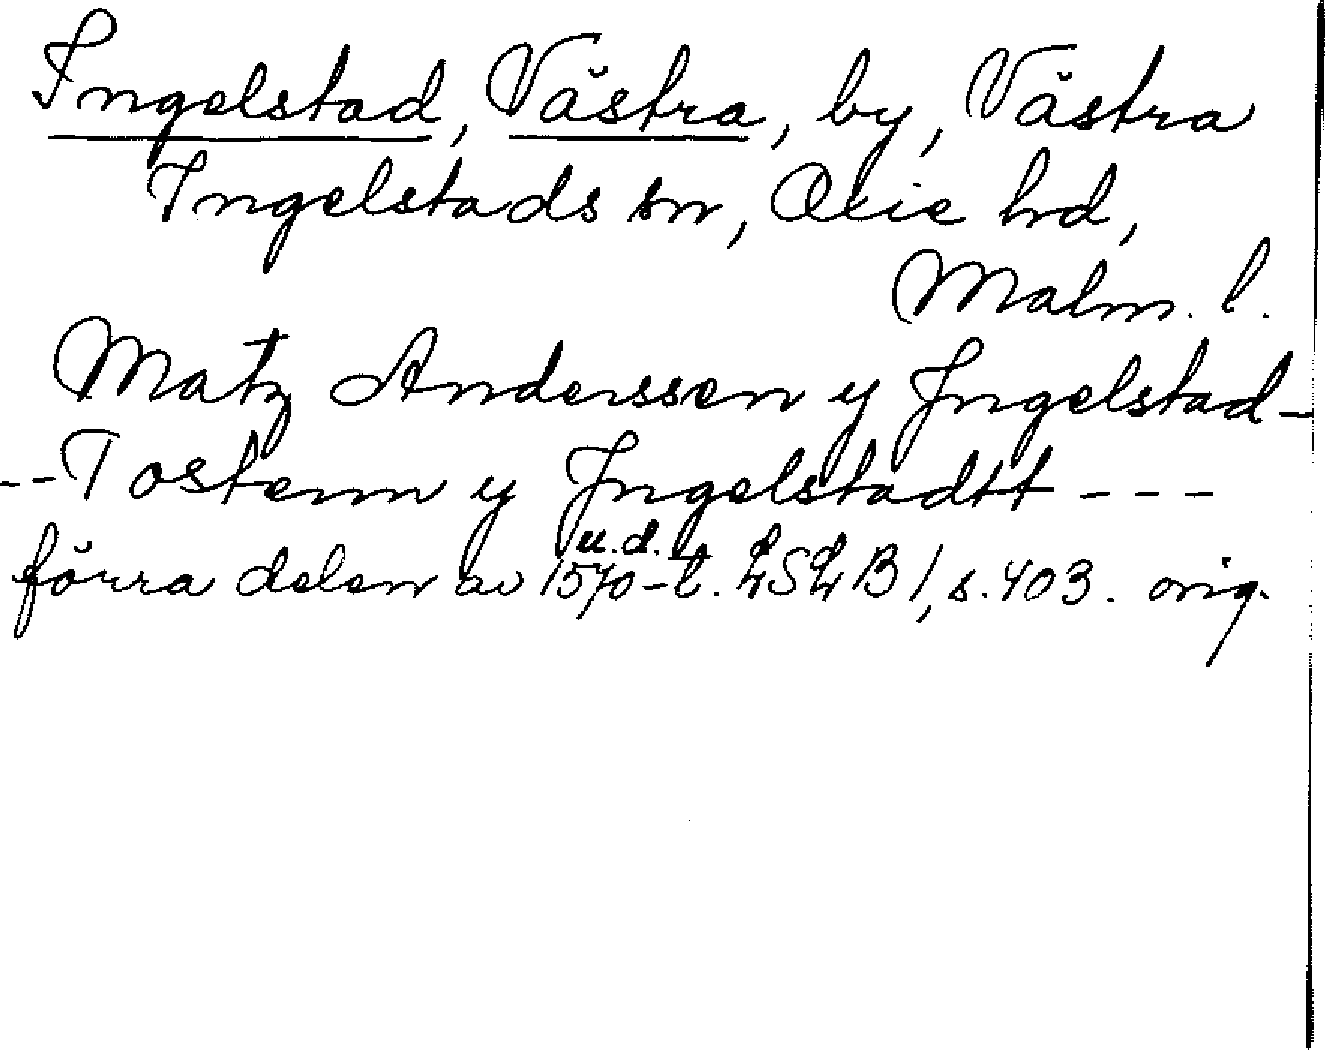 Ingelstad, Västra, by, Västra
Ingelstads sn, Oxie hrd,
Malm. l.
Matz Anderssen y Jngelstad -
-- Tostenn y Jngelstadtt - - -
u.d.
förra delen av 1570-t. LSLB 1, s. 403. orig.